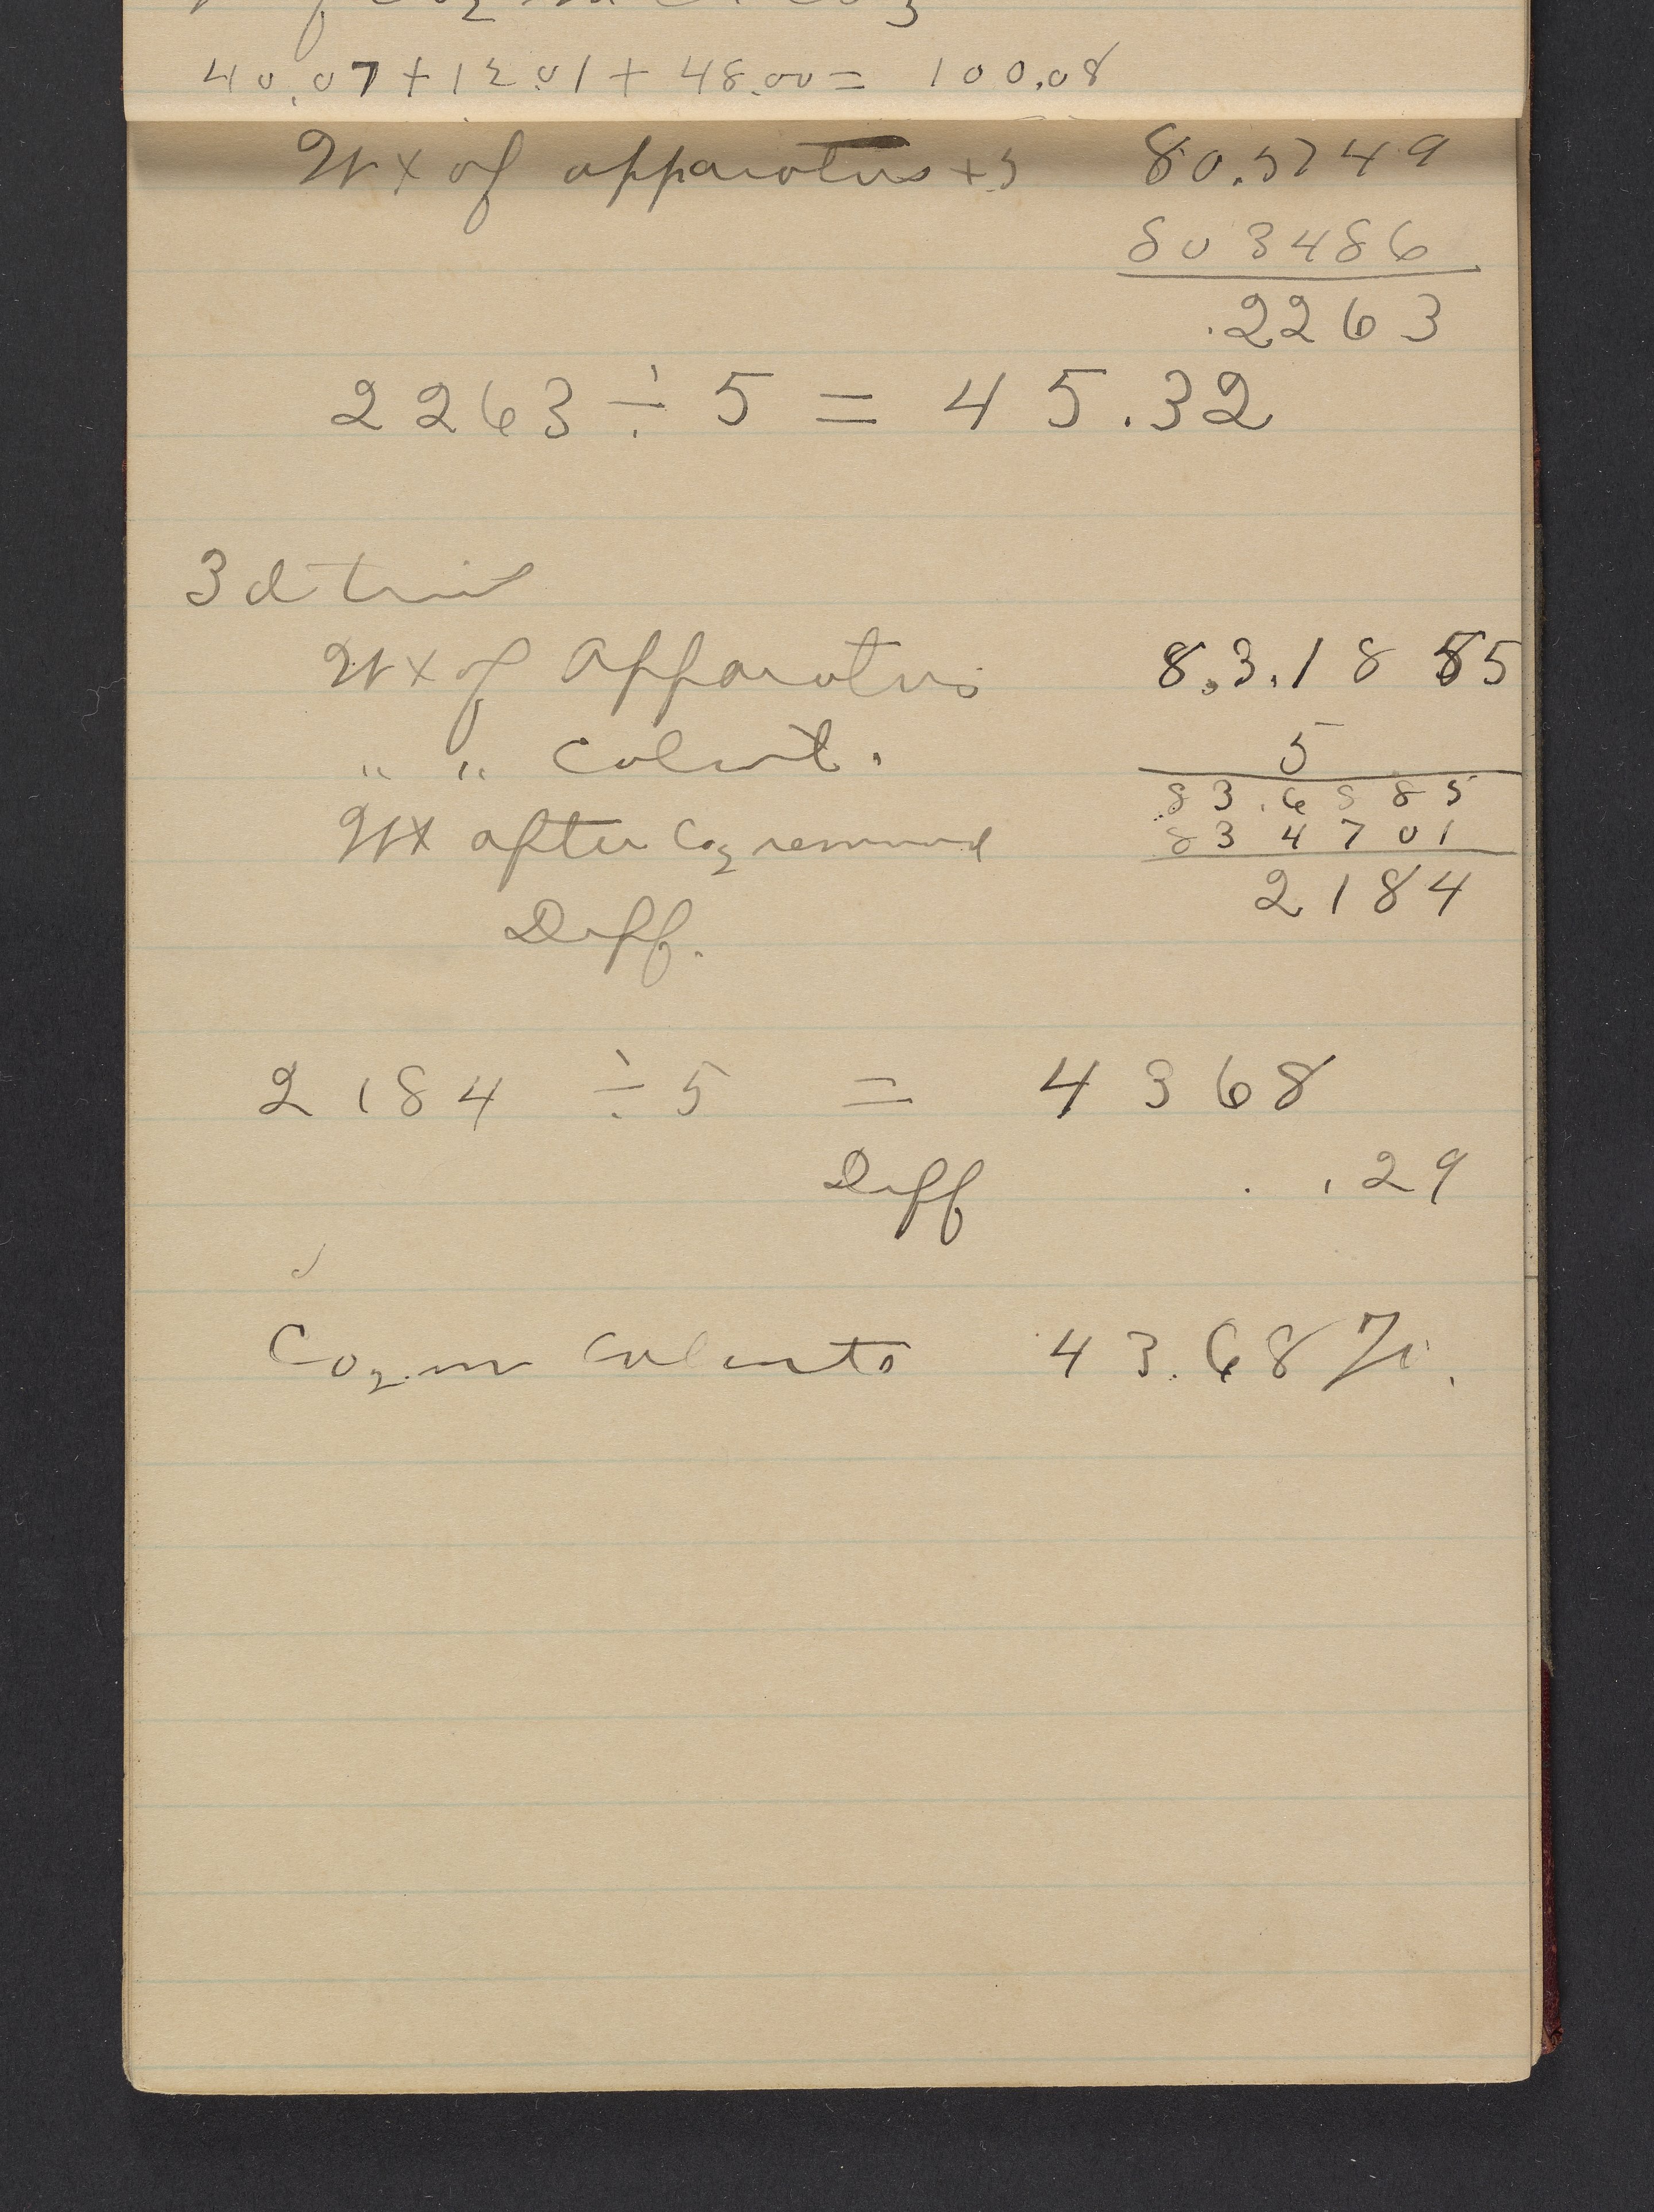 40.07 + 12.01 + 48.00 = 100.08
Wt of apparatus + 5 80.5749
803486
.2263
2263 ÷ 5 = 45.32
3d trial
Wt of Apparatus 8.3.1885
" " Calcit. 5
83.6885
Wt after CO2 removed 834701
2184
Diff.
2184 ÷ 5 = 4368
Diff . .29
CO2 in Calcite 43.68%.